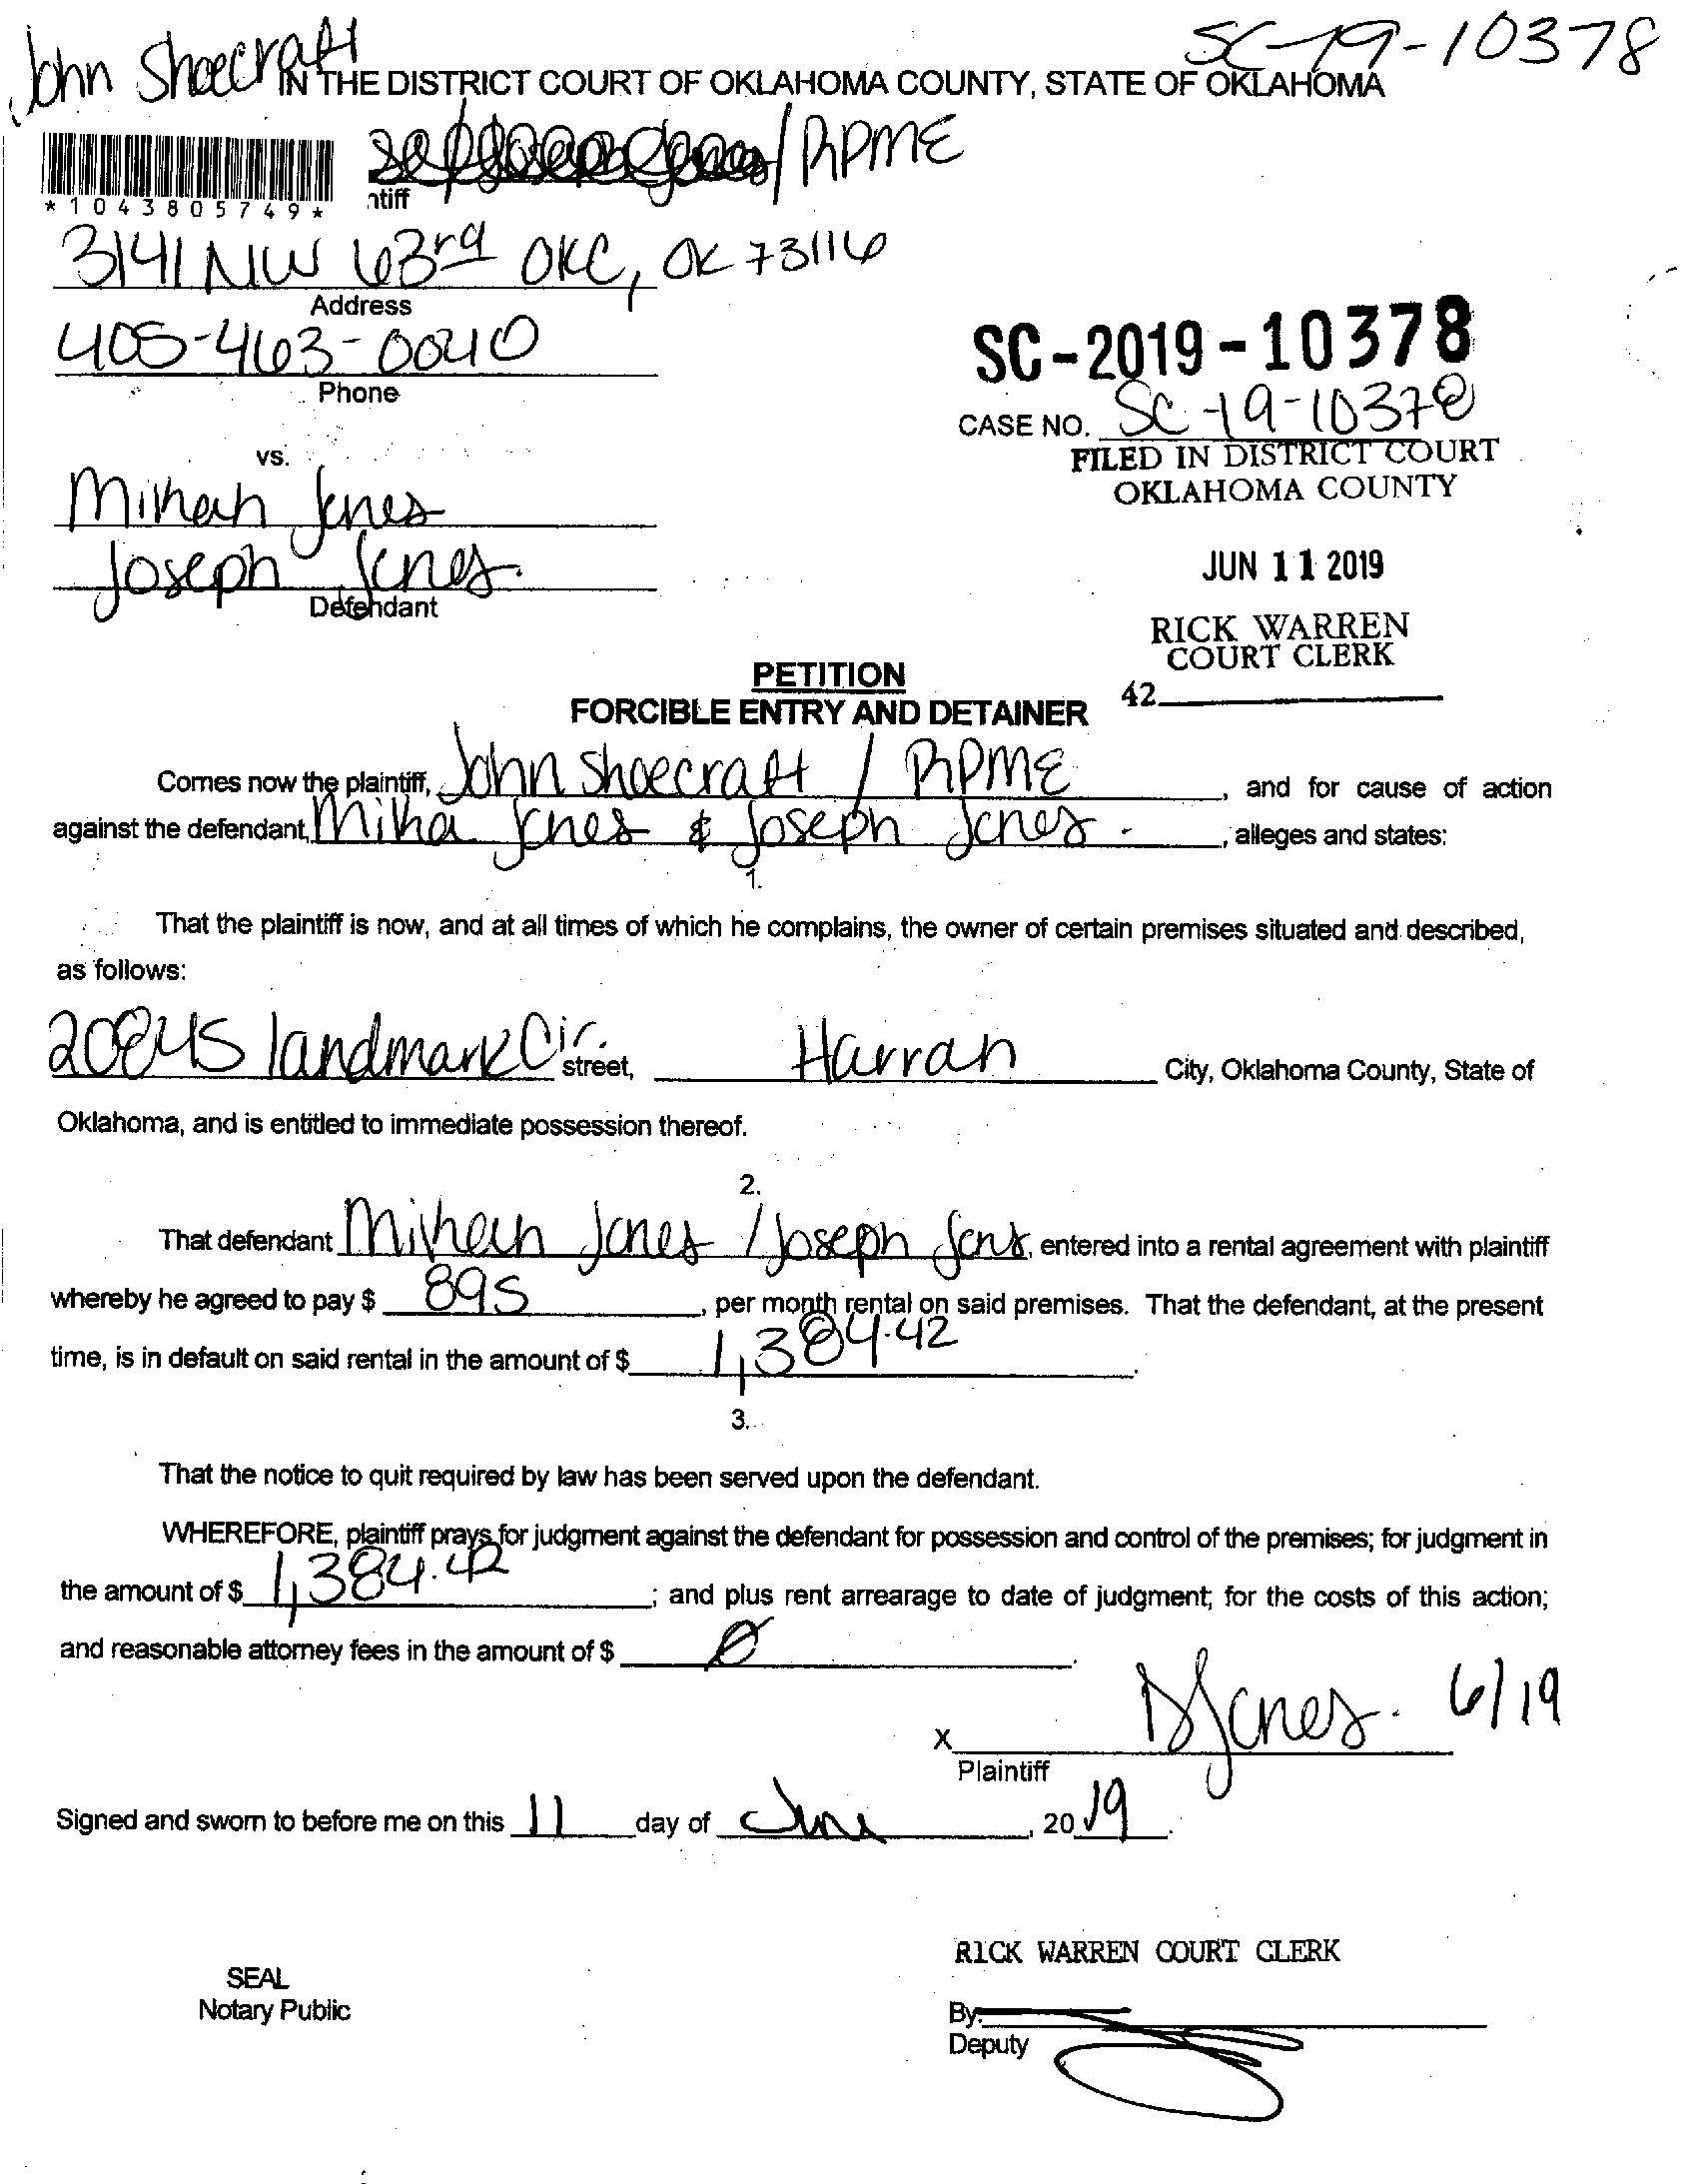 John Shoecraft
SC-19-10378
IN THE DISTRICT COURT OF OKLAHOMA COUNTY, STATE OF OKLAHOMA
/ RPME
*1043805749*
ntiff
3141 NW 63rd OKC, OK 73116
Address
405-463-0040
Phone
SC-2019-10378
CASE NO. SC-19-10378
vs.
FILED IN DISTRICT COURT
OKLAHOMA COUNTY
Jones
Joseph Jones
Defendant
JUN 11 2019
RICK WARREN
COURT CLERK
42
PETITION
FORCIBLE ENTRY AND DETAINER
Comes now the plaintiff, John Shoecraft / RPME, and for cause of action
against the defendant, Miha Jones & Joseph Jones, alleges and states:
1.
That the plaintiff is now, and at all times of which he complains, the owner of certain premises situated and described,
as follows:
landmark Cir. street, Harrah City, Oklahoma County, State of
Oklahoma, and is entitled to immediate possession thereof.
2.
That defendant Jones / Joseph Jones, entered into a rental agreement with plaintiff
whereby he agreed to pay $ 895, per month rental on said premises. That the defendant, at the present
time, is in default on said rental in the amount of $ 1,384.42.
3.
That the notice to quit required by law has been served upon the defendant.
WHEREFORE, plaintiff prays for judgment against the defendant for possession and control of the premises; for judgment in
the amount of $ 1,384.42; and plus rent arrearage to date of judgment; for the costs of this action;
and reasonable attorney fees in the amount of $ 0.
X DJones. 6/19
Plaintiff
Signed and sworn to before me on this 11 day of June, 2019.
RICK WARREN COURT CLERK
SEAL
Notary Public
By:
Deputy